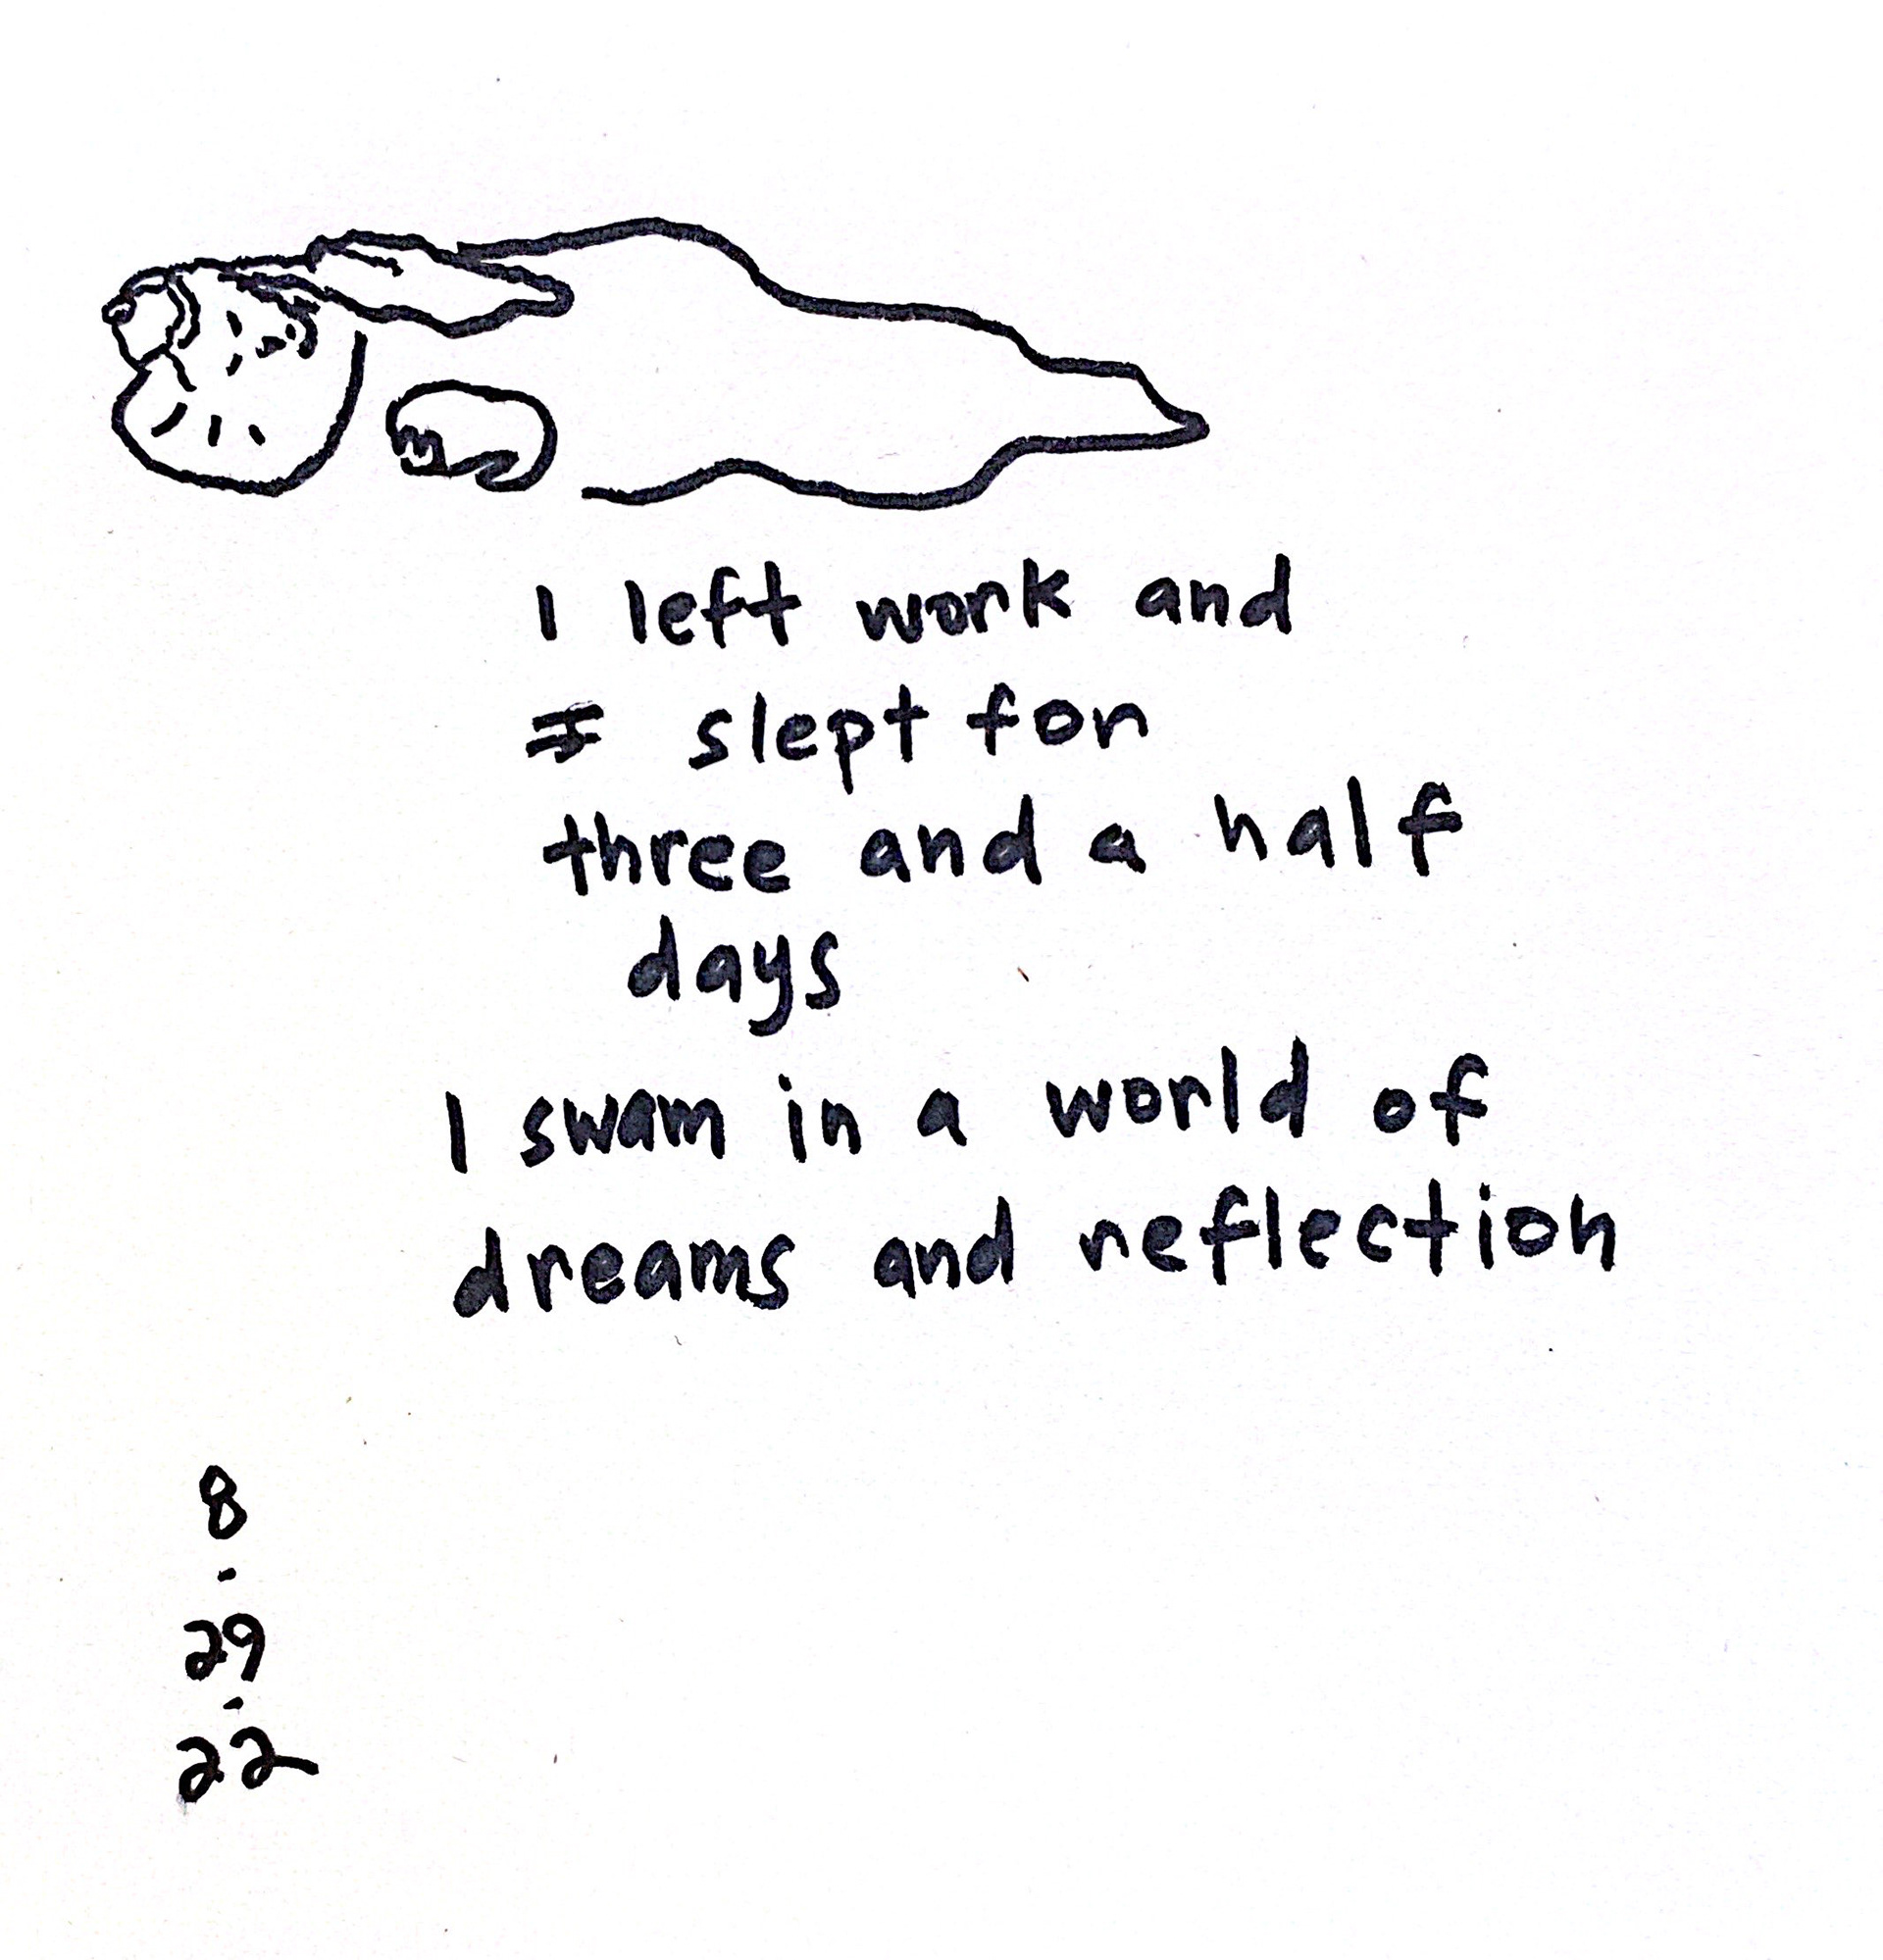 I left work and
I slept for
three and a half
days
I swam in a world of
dreams and reflection
8
.
29
.
22